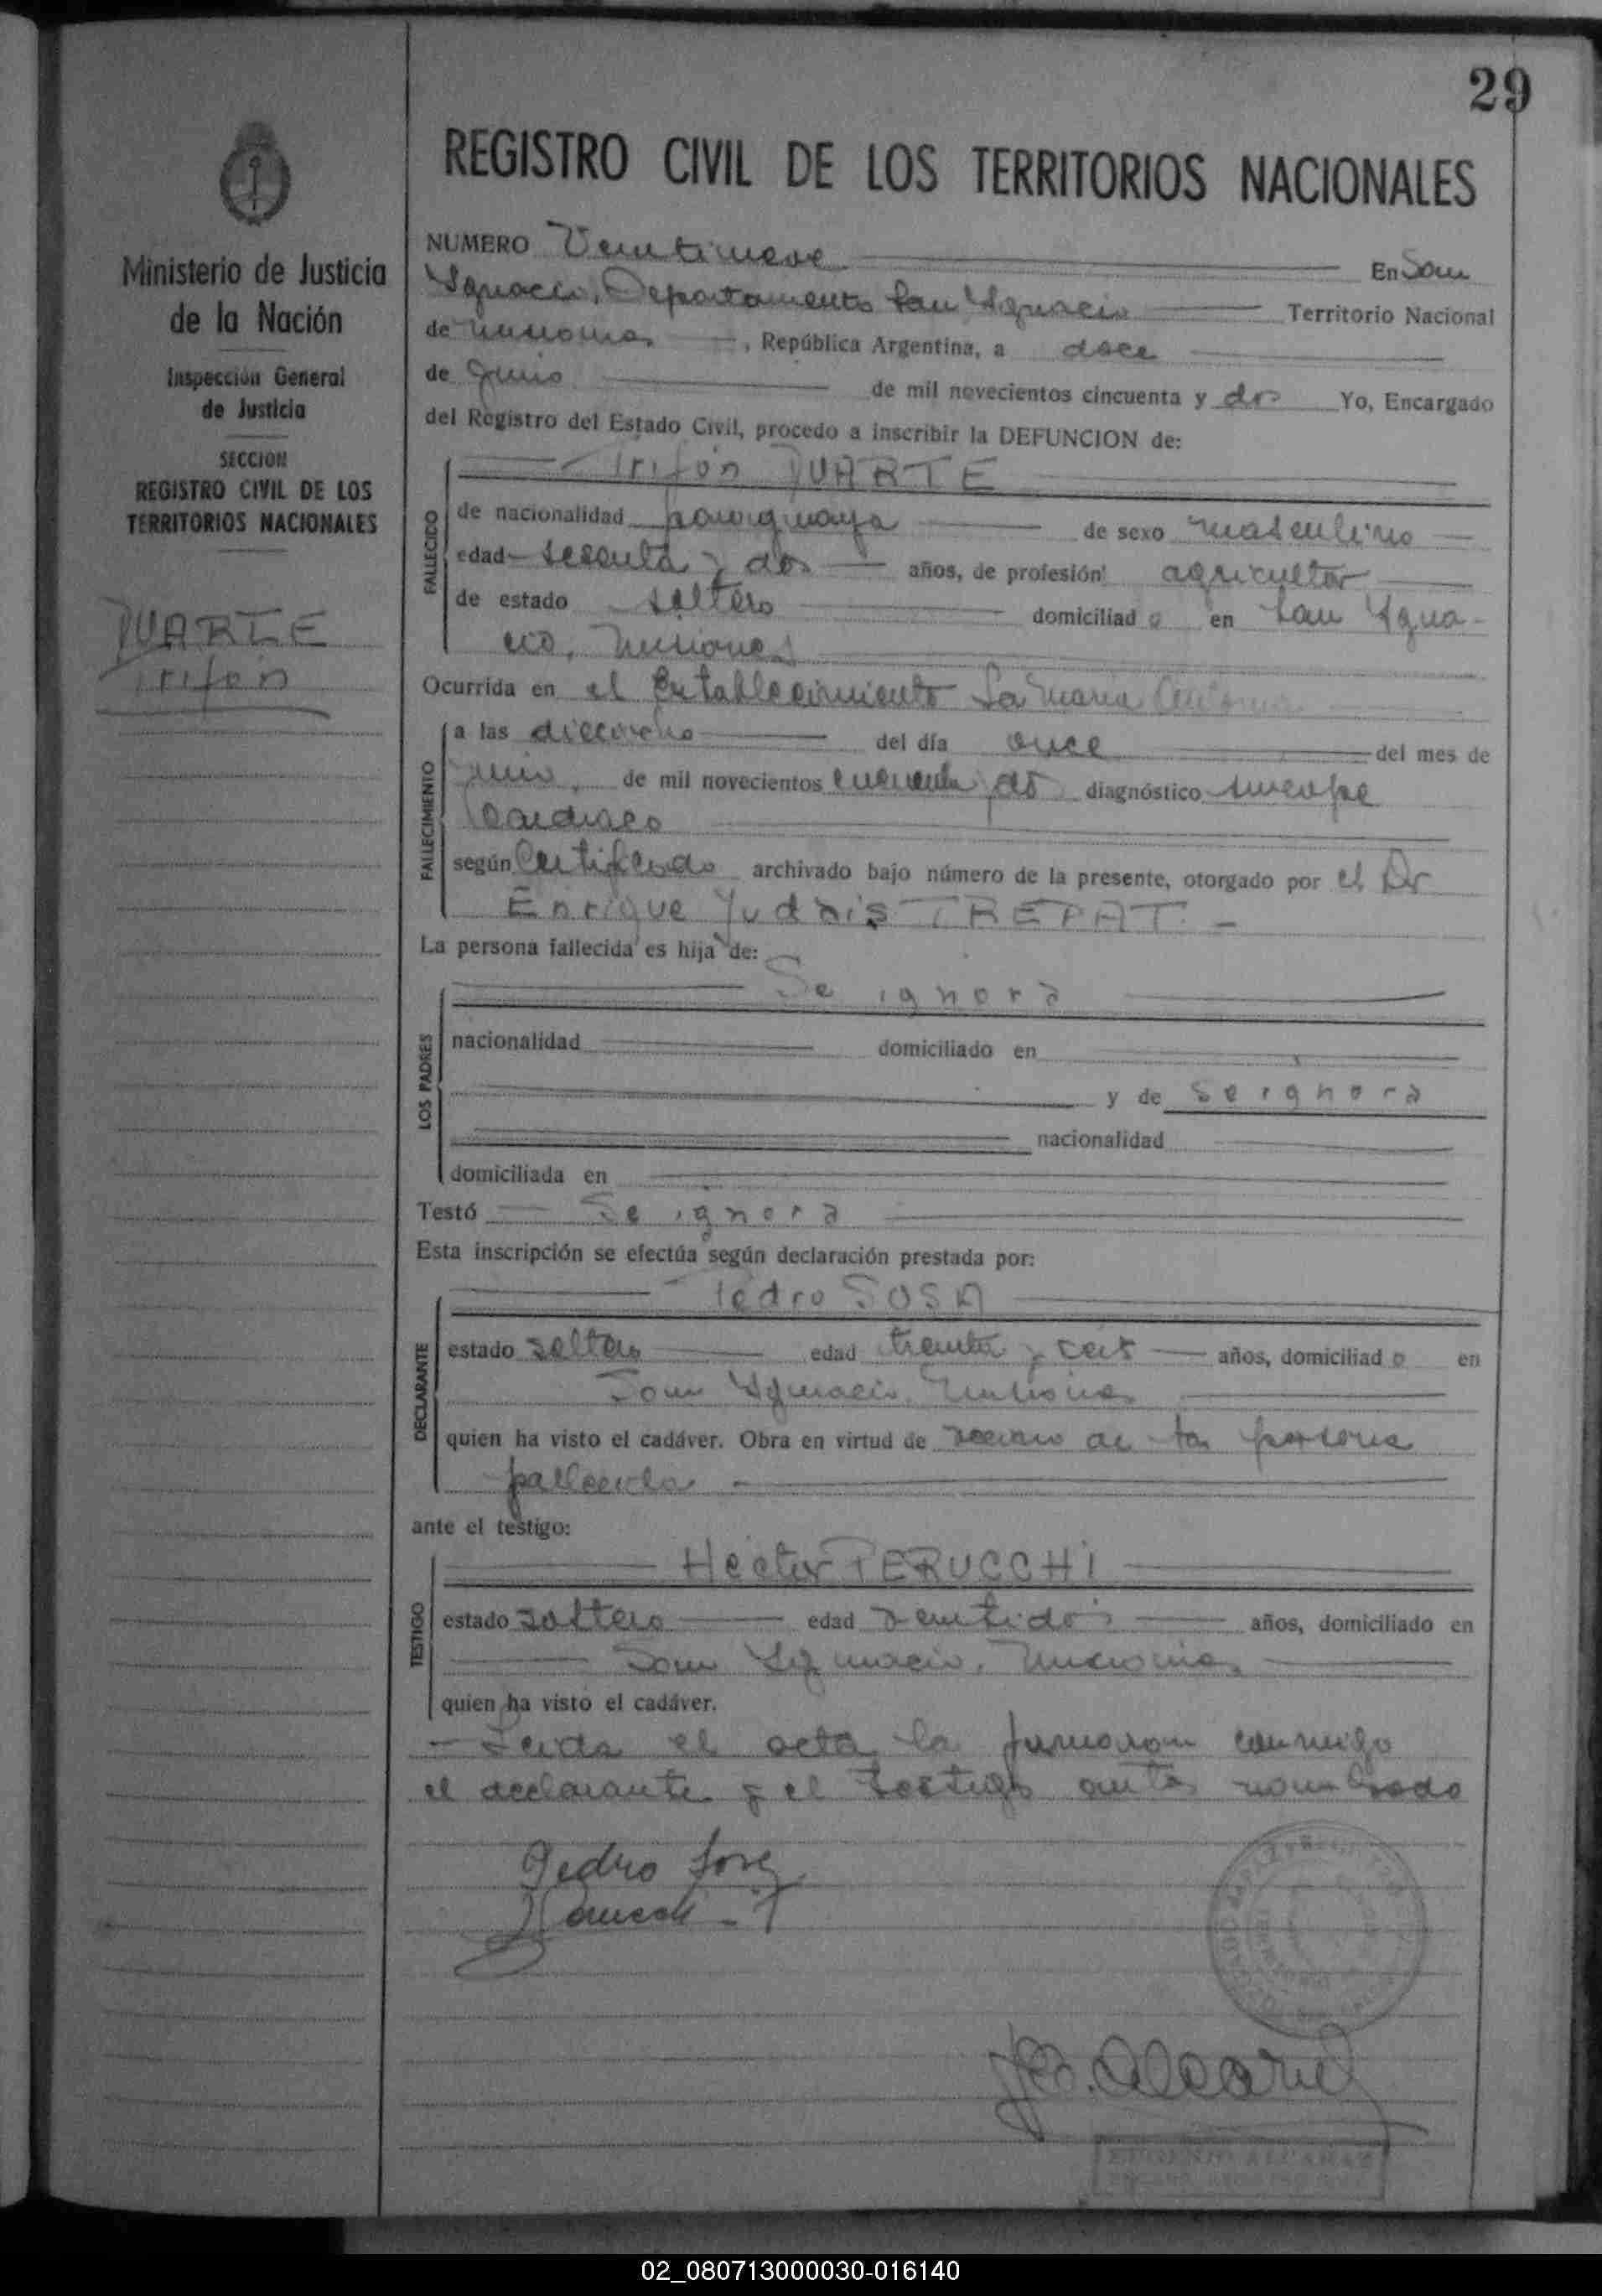 29
Ministerio de Justicia
de la Nación
Inspección General
de Justicia
SECCION
REGISTRO CIVIL DE LOS
TERRITORIOS NACIONALES
DUARTE
Trifón
REGISTRO CIVIL DE LOS TERRITORIOS NACIONALES
NUMERO Veintinueve En San
Ignacio, Departamento San Ignacio Territorio Nacional
de Misiones, República Argentina, a doce
de Junio de mil novecientos cincuenta y dos Yo, Encargado
del Registro del Estado Civil, procedo a inscribir la DEFUNCION de:
Trifón DUARTE
FALLECIDO
de nacionalidad paraguaya de sexo masculino
edad sesenta y dos años, de profesión agricultor
de estado soltero domiciliado en San Igna-
cio, Misiones
Ocurrida en el Establecimiento La Maria Antonia
FALLECIMIENTO
a las dieciocho del día once del mes de
Junio, de mil novecientos cincuenta y dos diagnóstico sincope
Cardiaco
según Certificado archivado bajo número de la presente, otorgado por el Dr
Enrique TREPAT.-
La persona fallecida es hija de:
LOS PADRES
Se ignora
nacionalidad domiciliado en
y de Se ignora
nacionalidad
domiciliada en
Testó Se ignora
Esta inscripción se efectúa según declaración prestada por:
DECLARANTE
Pedro SOSA
estado soltero edad treinta y seis años, domiciliado en
San Ignacio, Misiones
quien ha visto el cadáver. Obra en virtud de vecino de la persona
fallecida
ante el testigo:
TESTIGO
Hector PERUCCHI
estado soltero edad veintidos años, domiciliado en
San Ignacio, Misiones
quien ha visto el cadáver.
- Leida el acta la firmaron conmigo
el declarante y el testigo antes nombrado
Pedro Sosa
EUGENIO ALCARAZ
02_080713000030-016140